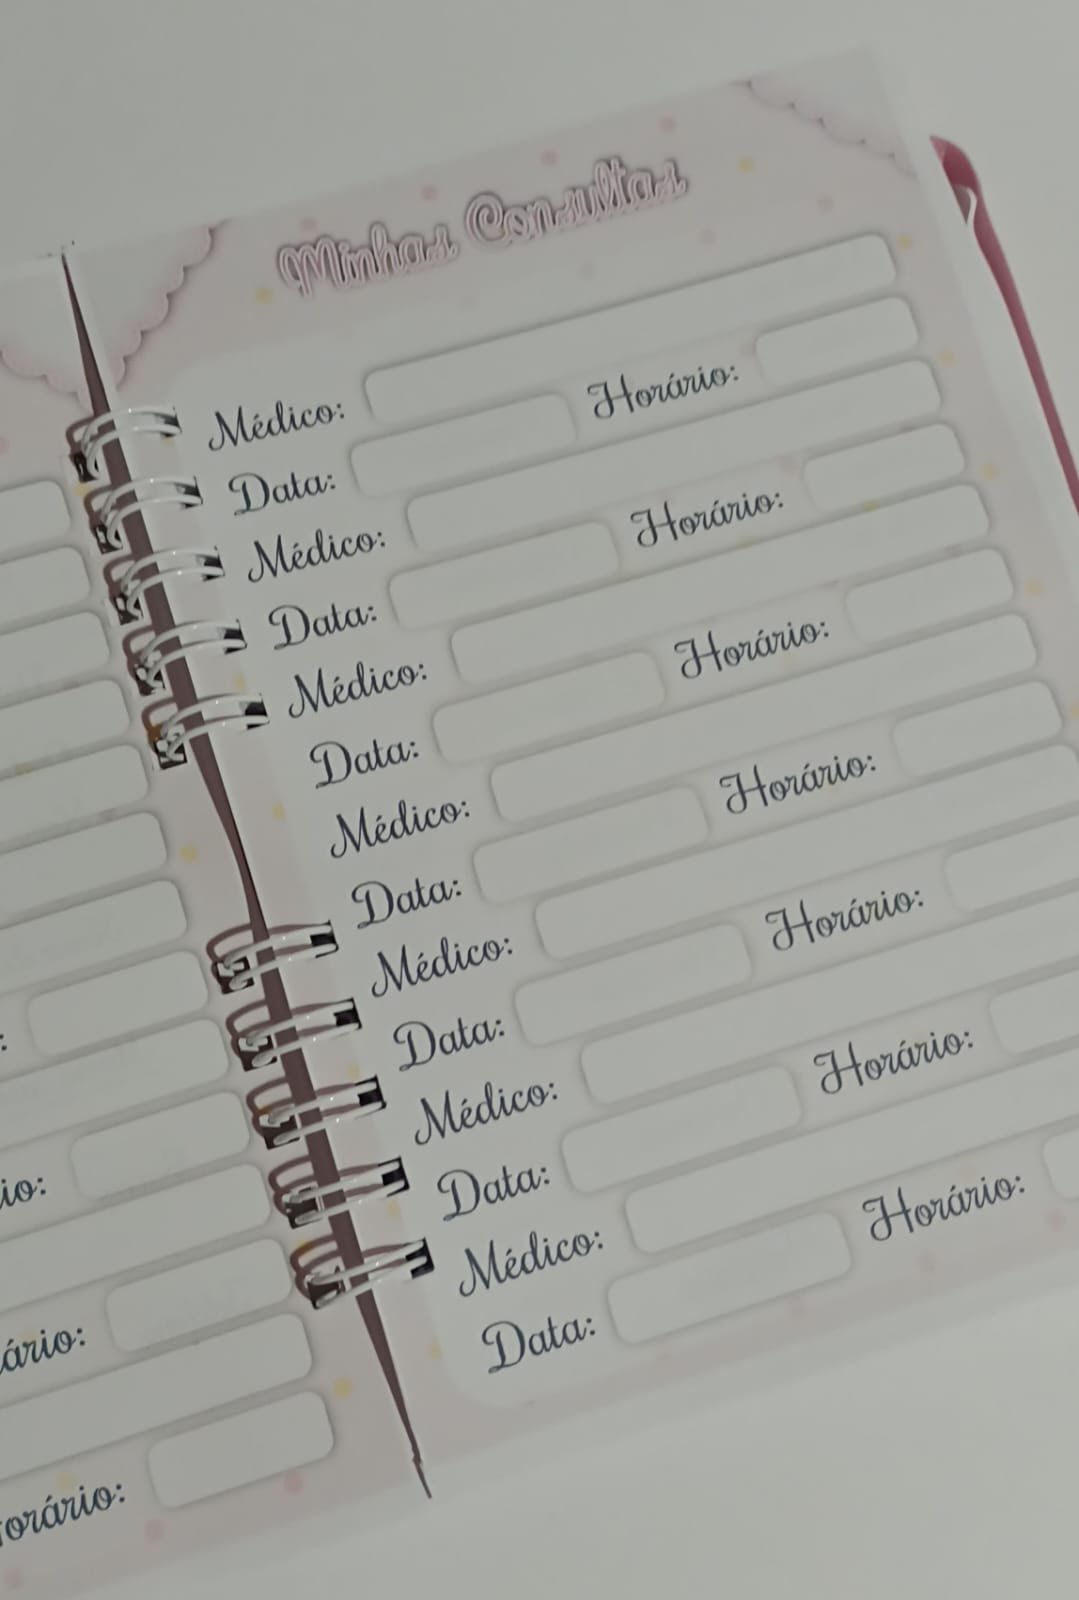 Minhas Consultas
Médico:
Data: Horário:
Médico:
Data: Horário:
Médico:
Data: Horário:
Médico:
Data: Horário:
Médico:
Data: Horário:
Médico:
Data: Horário:
Médico:
Data: Horário:
io:
ário:
orário: